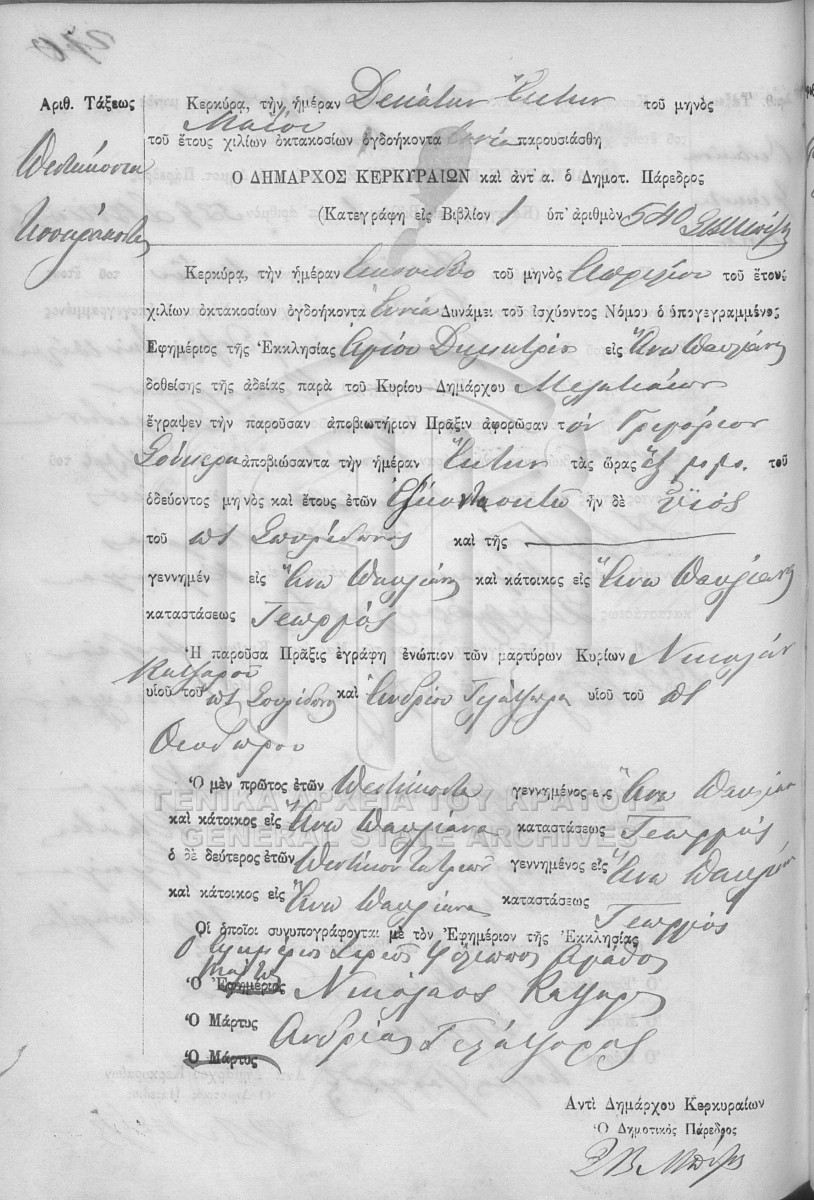 270
Ἀριθ. Τάξεως
Πεντακόσια
Τεσσαράκοντα
Κερκύρα, τὴν ἡμέραν Δεκάτην Ἕκτην τοῦ μηνὸς
Μαΐου
τοῦ ἔτους χιλίων ὀκτακοσίων ὀγδοήκοντα ἐννέα παρουσιάσθη
Ὁ ΔΗΜΑΡΧΟΣ ΚΕΡΚΥΡΑΙΩΝ καὶ ἀντ᾽ α. ὁ Δημοτ. Πάρεδρος
(Κατεγράφη εἰς Βιβλίον 1 ὑπ᾽ ἀριθμὸν 540
Κερκύρα, τὴν ἡμέραν τοῦ μηνὸς Ἀπριλίου τοῦ ἔτους
χιλίων ὀκτακοσίων ὀγδοήκοντα ἐννέα Δυνάμει τοῦ ἰσχύοντος Νόμου ὁ ὑπογεγραμμένος
Ἐφημέριος τῆς Ἐκκλησίας Ἁγίου Δημητρίου εἰς Ἄνω Παυλιάνα
δοθείσης τῆς ἀδείας παρὰ τοῦ Κυρίου Δημάρχου Μελιτιέων
ἔγραψεν τὴν παροῦσαν ἀποβιωτήριον Πρᾶξιν ἀφορῶσαν τὸν Γρηγόριον
Σούκερα ἀποβιώσαντα τὴν ἡμέραν Ἕκτην τὰς ὥρας ἓξ μ.μ. τοῦ
ὁδεύοντος μηνὸς καὶ ἔτους ἐτῶν ἑξήκοντα ὀκτὼ ἦν δὲ υἱὸς
τοῦ ποτὲ Σπυρίδωνος καὶ τῆς
γεννημέν εἰς Ἄνω Παυλιάνα καὶ κάτοικος εἰς Ἄνω Παυλιάνα
καταστάσεως Γεωργὸς
Ἡ παροῦσα Πρᾶξις ἐγράφη ἐνώπιον τῶν μαρτύρων Κυρίων Νικολάου
Κατζαροῦ
υἱοῦ τοῦ ποτὲ Σπυρίδωνος καὶ Ἀνδρέου Γελάτζορα υἱοῦ τοῦ ποτὲ
Θεοδώρου
Ὁ μὲν πρῶτος ἐτῶν Πεντήκοντα γεννημένος εἰς Ἄνω Παυλιάνα
καὶ κάτοικος εἰς Ἄνω Παυλιάνα καταστάσεως Γεωργὸς
ὁ δὲ δεύτερος ἐτῶν Πεντήκοντα τριῶν γεννημένος εἰς Ἄνω Παυλιάνα
καὶ κάτοικος εἰς Ἄνω Παυλιάνα καταστάσεως Γεωργὸς
Οἱ ὁποῖοι συνυπογράφονται μὲ τὸν Ἐφημέριον τῆς Ἐκκλησίας
Ὁ ἐφημέριος Ἱερεὺς Φίλιππος Ἀγάθος
Ὁ Ἐφημέριος Μάρτυς Νικόλαος Κατζαρὸς
Ὁ Μάρτυς Ἀνδρέας Γελάτζορας
Ὁ Μάρτυς
ΓΕΝΙΚΑ ΑΡΧΕΙΑ ΤΟΥ ΚΡΑΤΟΥΣ
GENERAL STATE ARCHIVES
Ἀντὶ Δημάρχου Κερκυραίων
Ὁ Δημοτικὸς Πάρεδρος